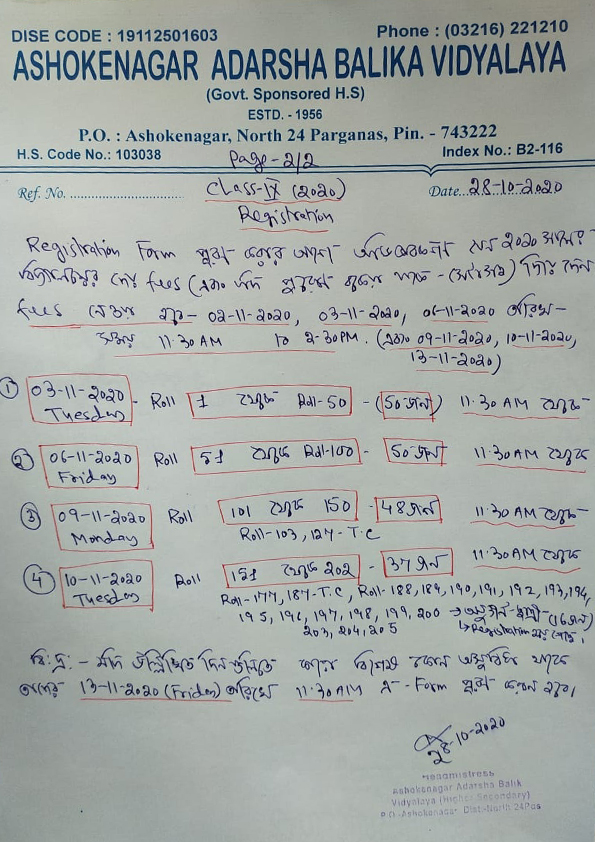 DISE CODE : 19112501603 Phone : (03216) 221210
ASHOKENAGAR ADARSHA BALIKA VIDYALAYA
(Govt. Sponsored H.S)
ESTD. - 1956
P.O. : Ashokenagar, North 24 Parganas, Pin. - 743222
H.S. Code No.: 103038 Page-2/2 Index No.: B2-116
Ref. No. Class-IX (2020) Date. 28-10-2020
Registration
Registration Form পূরণ করার আগে
fees (এবং যদি
fees নেওয়া হবে- 02-11-2020, 03-11-2020, 06-11-2020 তারিখ-
11.30 AM to 2-30PM. (এবং 09-11-2020, 10-11-2020,
13-11-2020)
① 03-11-2020 - Roll 1 থেকে Roll-50 - (50জন) 11.30AM থেকে
Tuesday
② 06-11-2020 Roll 51 থেকে Roll-100 - 50জন 11.30AM থেকে
Friday
③ 09-11-2020 Roll 101 থেকে 150 - 48জন 11.30AM থেকে
Monday Roll-103, 127-T.C
④ 10-11-2020 Roll 151 থেকে 202 - 37জন 11.30AM থেকে
Tuesday Roll-177, 187-T.C, Roll-188, 189, 190, 191, 192, 193, 194,
195, 196, 197, 198, 199, 200
203, 204, 205 Registration
বিঃদ্রঃ - যদি উল্লিখিত দিনগুলিতে কারো বিশেষ কোন অসুবিধা থাকে
তাদের 13-11-2020 (Friday) তারিখে 11.30AM এ - Form পূরণ করতে হবে।
28-10-2020
Ashokenagar Adarsha Balik
Vidyalaya (Higher Secondary)
P.O.-Ashokenagar Dist-North 24Pgs